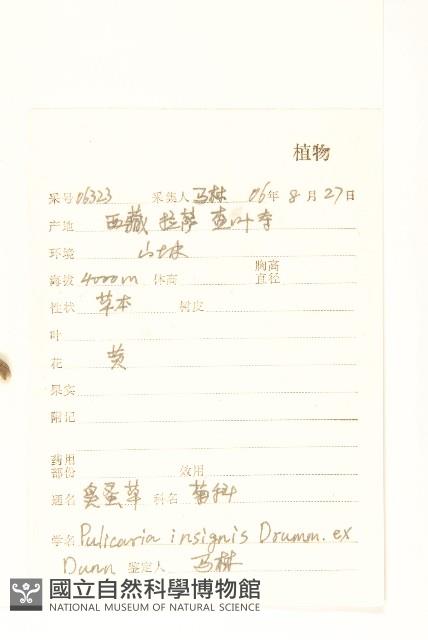 植物
采号 06323 采集人 马林 06年 8月 27日
产地 西藏 拉萨 查叶寺
环境 山坡
海拔 4000m 体高 胸高直径
性状 草本 树皮
叶
花 黄
果实
附记
药用部份 效用
通名 臭蚤草 科名 菊科
学名 Pulicaria insignis Drumm. ex
Dunn 鉴定人 马林
國立自然科學博物館
NATIONAL MUSEUM OF NATURAL SCIENCE